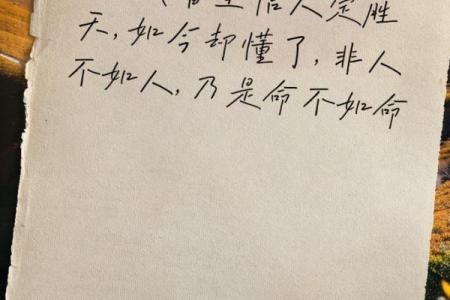 信人定胜
天,如今却懂了,非人
不如人,乃是命不如命